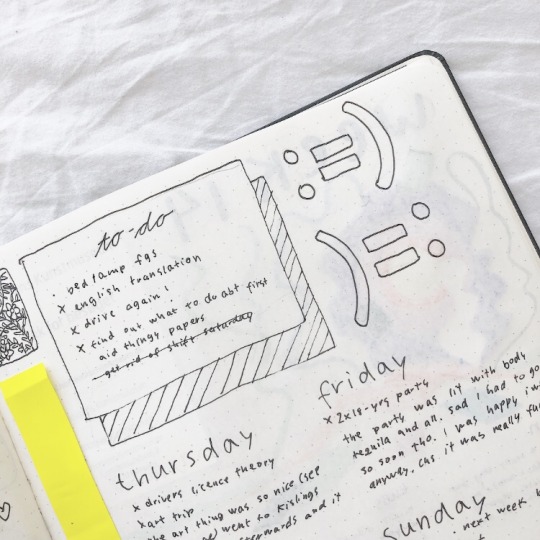 to-do
· bed lamp fgs
x english translation
x drive again!
x find out what to do abt first
aid thingy papers
get rid of shift saturday
:=)
(=:
thursday
x drivers licence theory
x art trip
the art thing was so nice (see
went to kivlings
afterwards and it
friday
x 2x18-yrs party
the party was lit with body
tequila and all. sad I had to go
so soon tho. I was happy
anyway, cus it was really fun
sunday
· next week